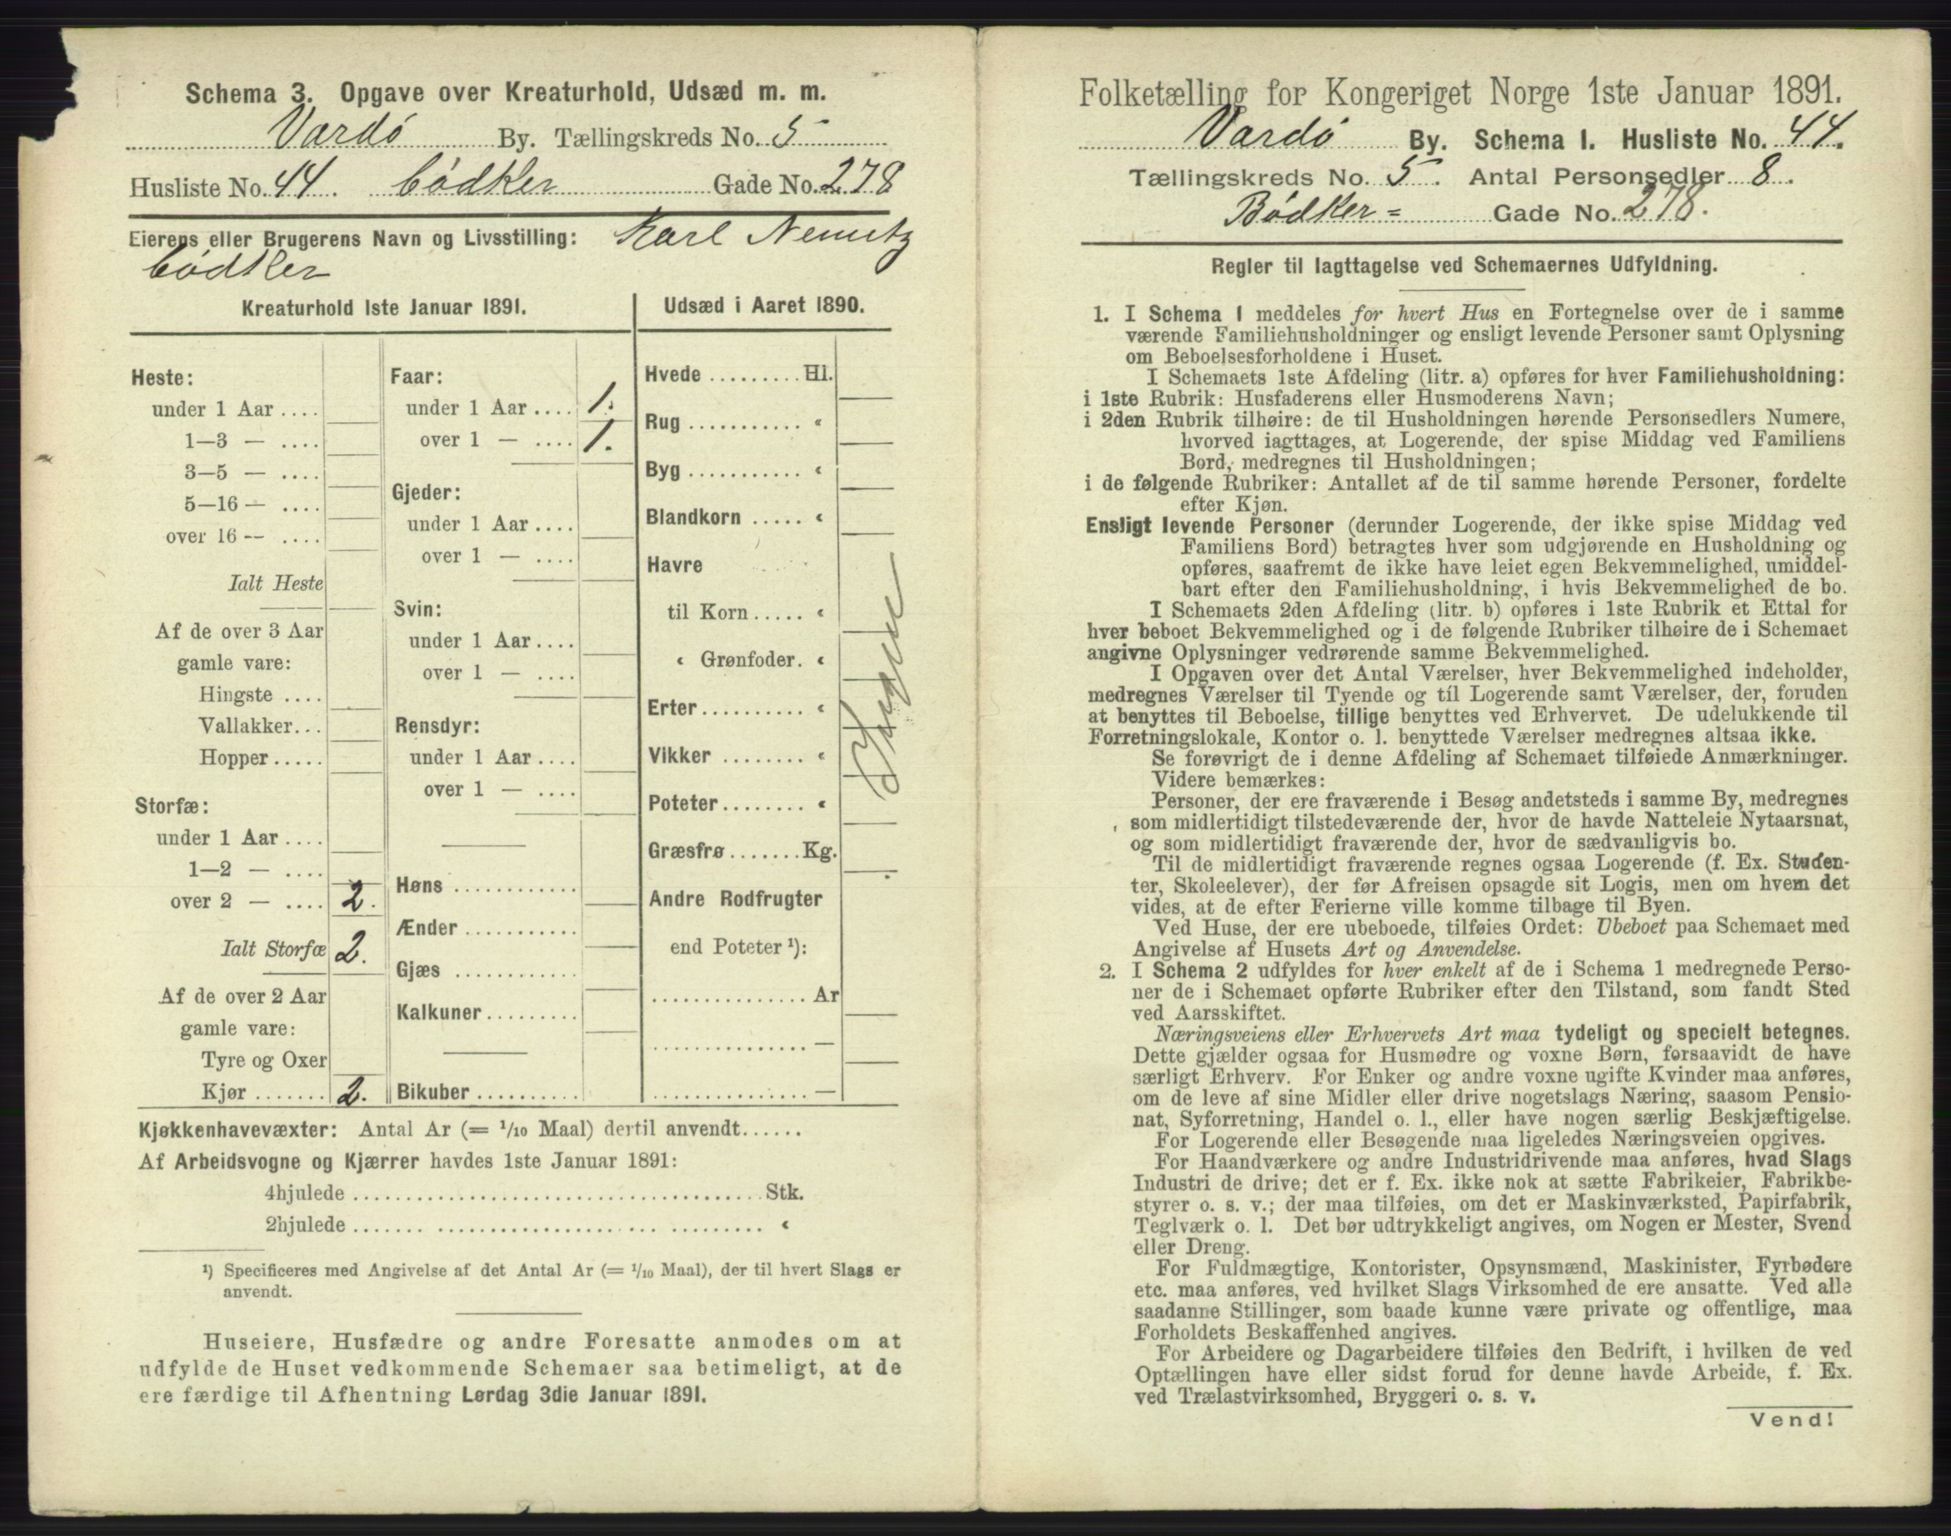 Schema 3. Opgave over Kreaturhold, Udsæd m. m.
Vardö By. Tællingskreds No. 5
Husliste No. 44. bödker Gade No. 278
Eierens eller Brugerens Navn og Livsstilling: Karl Nemitz
bödker
Kreaturhold 1ste Januar 1891.
Heste:
under 1 Aar ....
1—3 — ....
3—5 — ....
5—16 — ....
over 16 — ....
Ialt Heste
Af de over 3 Aar
gamle vare:
Hingste ....
Vallakker...
Hopper.....
Storfæ:
under 1 Aar....
1—2 — ....
over 2 — .... 2.
Ialt Storfæ 2.
Af de over 2 Aar
gamle vare:
Tyre og Oxer
Kjør ....... 2.
Faar:
under 1 Aar .... 1.
over 1 — .... 1.
Gjeder:
under 1 Aar....
over 1 — ....
Svin:
under 1 Aar....
over 1 — ....
Rensdyr:
under 1 Aar....
over 1 — ....
Høns ............
Ænder ...........
Gjæs ............
Kalkuner.........
Bikuber ..........
Udsæd i Aaret 1890.
Hvede ......... Hl.
Rug ........... «
Byg ........... «
Blandkorn ..... «
Havre
til Korn..... «
« Grønfoder. «
Erter.......... «
Vikker ........ «
Poteter........ «
Græsfrø....... Kg.
Andre Rodfrugter
end Poteter ¹):
............... Ar
............... —
............... —
Ingen
Kjøkkenhavevæxter: Antal Ar (= 1/10 Maal) dertil anvendt......
Af Arbeidsvogne og Kjærrer havdes 1ste Januar 1891:
4hjulede ........................................ Stk.
2hjulede ........................................ «
¹) Specificeres med Angivelse af det Antal Ar (= 1/10 Maal), der til hvert Slags er
anvendt.
Huseiere, Husfædre og andre Foresatte anmodes om at
udfylde de Huset vedkommende Schemaer saa betimeligt, at de
ere færdige til Afhentning Lørdag 3die Januar 1891.
Folketælling for Kongeriget Norge 1ste Januar 1891.
Vardö By. Schema I. Husliste No. 44.
Tællingskreds No. 5. Antal Personsedler 8.
Bödker= Gade No. 278.
Regler til Iagttagelse ved Schemaernes Udfyldning.
1. I Schema I meddeles for hvert Hus en Fortegnelse over de i samme
værende Familiehusholdninger og ensligt levende Personer samt Oplysning
om Beboelsesforholdene i Huset.
I Schemaets 1ste Afdeling (litr. a) opføres for hver Familiehusholdning:
i 1ste Rubrik: Husfaderens eller Husmoderens Navn;
i 2den Rubrik tilhøire: de til Husholdningen hørende Personsedlers Numere,
hvorved iagttages, at Logerende, der spise Middag ved Familiens
Bord, medregnes til Husholdningen;
i de følgende Rubriker: Antallet af de til samme hørende Personer, fordelte
efter Kjøn.
Ensligt levende Personer (derunder Logerende, der ikke spise Middag ved
Familiens Bord) betragtes hver som udgjørende en Husholdning og
opføres, saafremt de ikke have leiet egen Bekvemmelighed, umiddel-
bart efter den Familiehusholdning, i hvis Bekvemmelighed de bo.
I Schemaets 2den Afdeling (litr. b) opføres i 1ste Rubrik et Ettal for
hver beboet Bekvemmelighed og i de følgende Rubriker tilhøire de i Schemaet
angivne Oplysninger vedrørende samme Bekvemmelighed.
I Opgaven over det Antal Værelser, hver Bekvemmelighed indeholder,
medregnes Værelser til Tyende og til Logerende samt Værelser, der, foruden
at benyttes til Beboelse, tillige benyttes ved Erhvervet. De udelukkende til
Forretningslokale, Kontor o. l. benyttede Værelser medregnes altsaa ikke.
Se forøvrigt de i denne Afdeling af Schemaet tilføiede Anmærkninger.
Videre bemærkes:
Personer, der ere fraværende i Besøg andetsteds i samme By, medregnes
som midlertidigt tilstedeværende der, hvor de havde Natteleie Nytaarsnat,
og som midlertidigt fraværende der, hvor de sædvanligvis bo.
Til de midlertidigt fraværende regnes ogsaa Logerende (f. Ex. Studen-
ter, Skoleelever), der før Afreisen opsagde sit Logis, men om hvem det
vides, at de efter Ferierne ville komme tilbage til Byen.
Ved Huse, der ere ubeboede, tilføies Ordet: Ubeboet paa Schemaet med
Angivelse af Husets Art og Anvendelse.
2. I Schema 2 udfyldes for hver enkelt af de i Schema 1 medregnede Perso-
ner de i Schemaet opførte Rubriker efter den Tilstand, som fandt Sted
ved Aarsskiftet.
Næringsveiens eller Erhvervets Art maa tydeligt og specielt betegnes.
Dette gjælder ogsaa for Husmødre og voxne Børn, forsaavidt de have
særligt Erhverv. For Enker og andre voxne ugifte Kvinder maa anføres,
om de leve af sine Midler eller drive nogetslags Næring, saasom Pensio-
nat, Syforretning, Handel o. l., eller have nogen særlig Beskjæftigelse.
For Logerende eller Besøgende maa ligeledes Næringsveien opgives.
For Haandværkere og andre Industridrivende maa anføres, hvad Slags
Industri de drive; det er f. Ex. ikke nok at sætte Fabrikeier, Fabrikbe-
styrer o. s. v.; der maa tilføies, om det er Maskinværksted, Papirfabrik,
Teglværk o. l. Det bør udtrykkeligt angives, om Nogen er Mester, Svend
eller Dreng.
For Fuldmægtige, Kontorister, Opsynsmænd, Maskinister, Fyrbødere
etc. maa anføres, ved hvilket Slags Virksomhed de ere ansatte. Ved alle
saadanne Stillinger, som baade kunne være private og offentlige, maa
Forholdets Beskaffenhed angives.
For Arbeidere og Dagarbeidere tilføies den Bedrift, i hvilken de ved
Optællingen have eller sidst forud for denne havde Arbeide, f. Ex.
ved Trælastvirksomhed, Bryggeri o. s. v.
Vend!